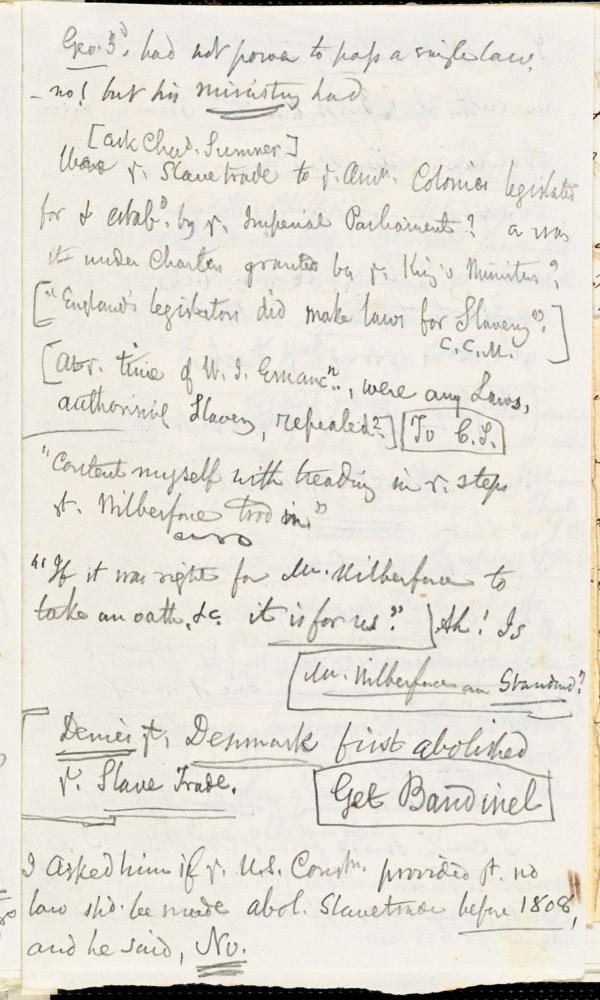 Geo. 3d. had not power to pass a single law.
- no! but his ministry had
[ask Chas. Sumner]
Was ye. Slave trade to ye. Amn. Colonies legislated
for & estabd. by ye. Imperial Parliament? or was
it under Charters granted by ye. King's Minister?
["England's legislators did make laws for Slavery".
C.C.M.]
[At ye. time of W. I. Emancn., were any Laws,
authorizing Slavery, repealed?] To C.S.
"Content myself with treading in ye. steps
yt. Wilberforce trod in"
"If it was right for Mr. Wilberforce to
take an oath, &c. it is for us?" Ah! Is
Mr. Wilberforce our Standard?
Denies yt. Denmark first abolished
ye. Slave Trade. Get Bandinel
I asked him if ye. U.S. Constn. provided yt. no
law shd. be made abol. Slavetrade before 1808,
and he said, No.